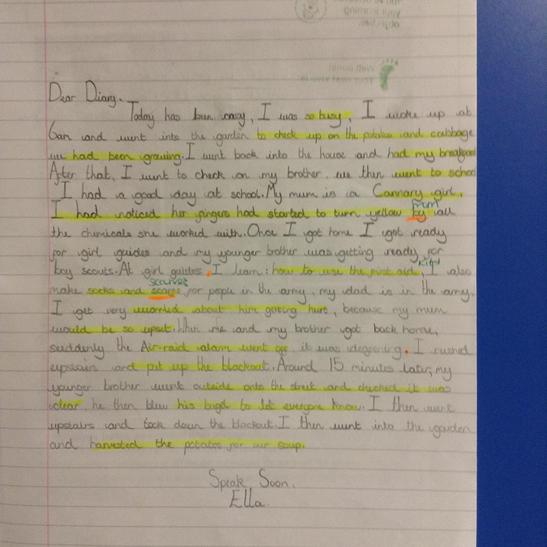 Dear Diary.
Today has been crazy, I was so busy, I woke up at
6am and went into the garden to check up on the potatoe and cabbage
we had been growing. I went back into the house and had my breakfast
After that, I went to check on my brother, we then went to school
I had a good day at school. My mum is a Cannary girl,
from
I had noticed her fingers had started to turn yellow by all
the chemicals she worked with. Once I got home I got ready
for girl guides and my younger brother was getting ready for
boy scouts. At girl guides, I learn how to use the first aid, I also
kit
scarves
make socks and for people in the army, my dad is in the army.
I get very worried about him getting hurt, because my mum
would be so upset. When me and my brother got back home,
suddenly the Air-raid alarm went off, it was deafening. I rushed
upstairs and put up the blackout. Around 15 minutes later, my
younger brother went outside onto the street and checked it was
clear, he then blew his bugle to let everyone know. I then went
upstairs and took down the blackout. I then went into the garden
and harvested the potatoes for our soup.
Speak Soon.
Ella.